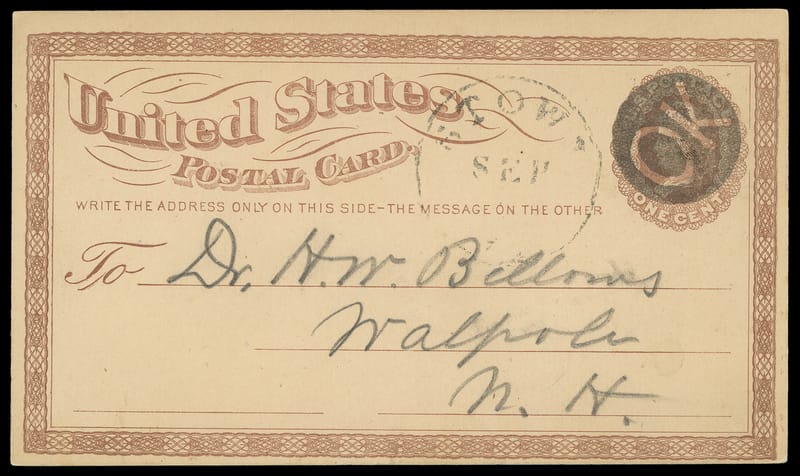 United States
POSTAL CARD.
WRITE THE ADDRESS ONLY ON THIS SIDE-THE MESSAGE ON THE OTHER
SEP
OK
ONE CENT
To Dr. H. W. Bellows
Walpole
N. H.